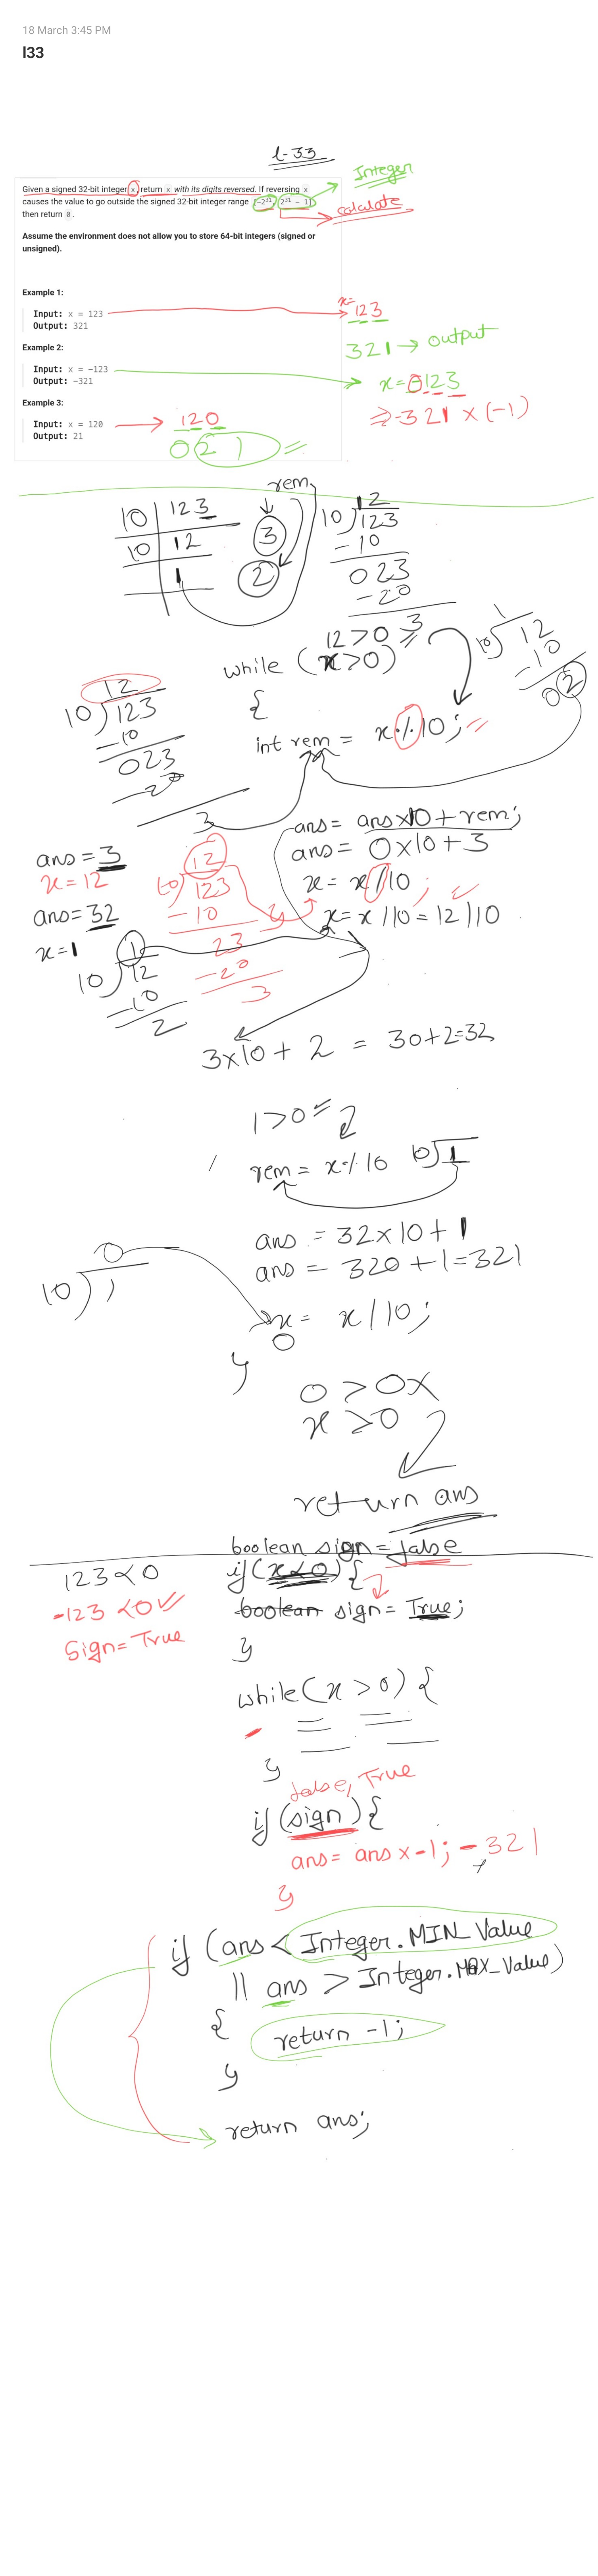 18 March 3:45 PM
l33
L-33
Given a signed 32-bit integer x, return x with its digits reversed. If reversing x
causes the value to go outside the signed 32-bit integer range [-2^31, 2^31 - 1],
then return 0.
Integer
calculate
Assume the environment does not allow you to store 64-bit integers (signed or
unsigned).
Example 1:
Input: x = 123
Output: 321
x=
123
321 → output
Example 2:
Input: x = -123
Output: -321
x=-123
⇒-321 x (-1)
Example 3:
Input: x = 120
Output: 21
120
021 =
rem
10 | 123
10 | 12
1
3
2
12
10)123
-10
023
-20
3
12>0
while (x>0)
{
1
10)12
-10
02
12
10)123
-10
023
-20
3
int rem = x%10;
ans = ans x10 + rem;
ans = 0x10 + 3
x = x/10;
x = x/10 = 12/10
ans = 3
x = 12
ans = 32
x = 1
12
10)123
-10
23
-20
3
}
1
10)12
-10
2
3x10 + 2 = 30+2=32
1>0
rem = x%10
10)1
ans = 32x10 + 1
ans = 320 + 1 = 321
0
10)1
x = x/10;
0
}
0 > 0x
x > 0
return ans
boolean sign = false
123 < 0
-123 < 0 ✓
Sign = True
if (x<0) {
boolean sign = True;
}
while (x > 0) {
}
false, True
if (sign) {
ans = ans x -1; -321
}
if (ans < Integer.MIN_Value
|| ans > Integer.MAX_Value)
{
return -1;
}
return ans;